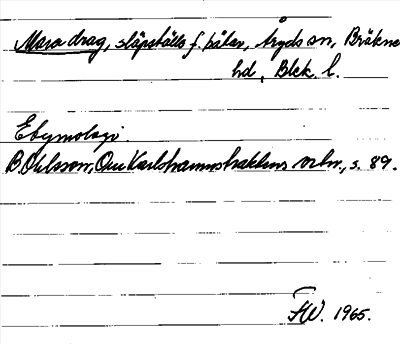 Maradrag, släpställe f. båtar, Åryds sn, Bräkne
hd, Blek. l.
Etymologi.
B. Ohlsson, Om Karlshamnstraktens ortn., s. 89.
HW. 1965.